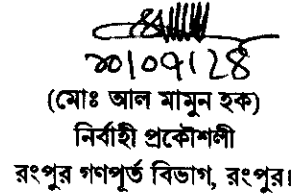 ২০|০৭|২৪
(মোঃ আল মামুন হক)
নির্বাহী প্রকৌশলী
রংপুর গণপূর্ত বিভাগ, রংপুর।